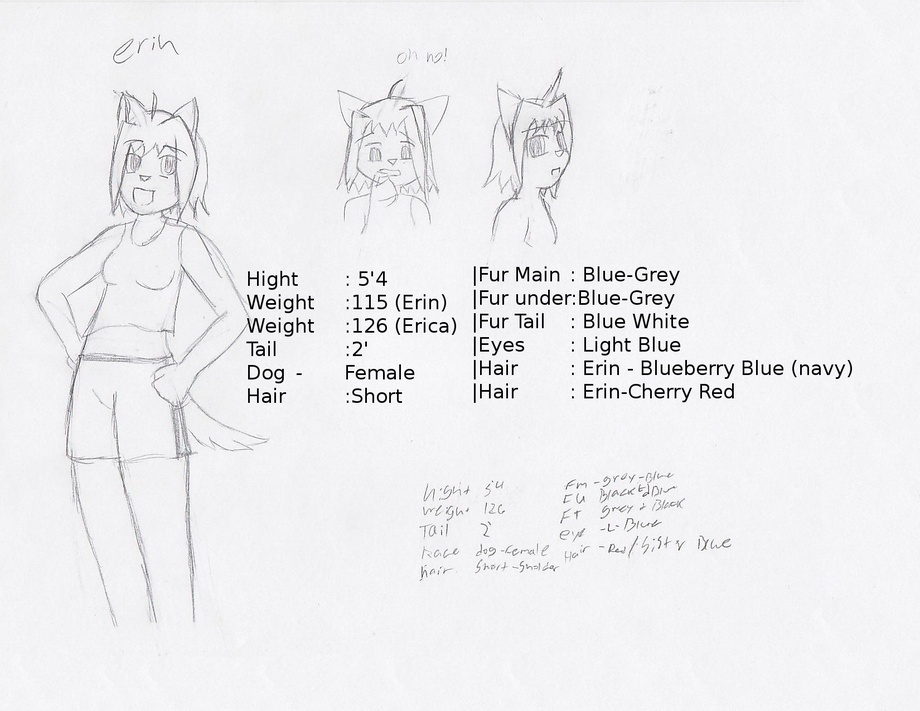 erin
oh no!
Hight : 5'4 |Fur Main : Blue-Grey
Weight :115 (Erin) |Fur under:Blue-Grey
Weight :126 (Erica) |Fur Tail : Blue White
Tail :2' |Eyes : Light Blue
Dog - Female |Hair : Erin - Blueberry Blue (navy)
Hair :Short |Hair : Erin-Cherry Red
hight 54 Fm -grey-Blue
weight 126 FU Black
Tail 2' FT grey & Black
Race dog-female eye -L-Blue
hair short-sholder Hair -Red/Sister Blue